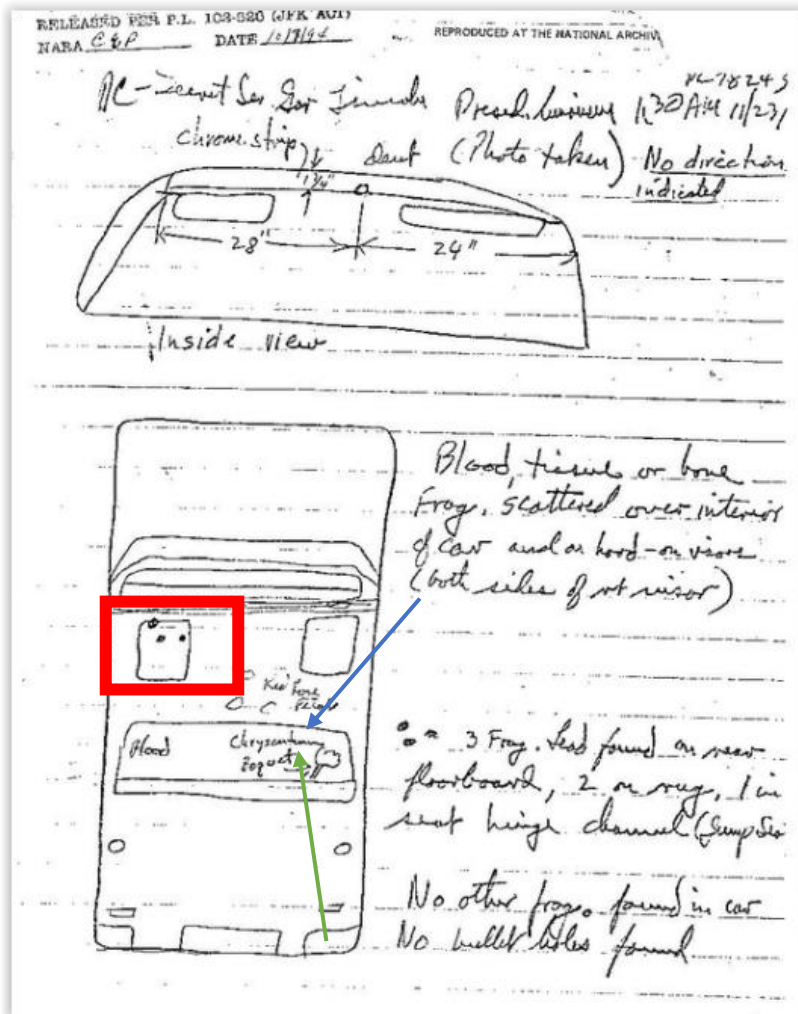 RELEASED PER P.L. 102-526 (JFK ACT)
NARA DATE 10/7/94
REPRODUCED AT THE NATIONAL ARCHIV
PC-78243
PC-Secret Ser Gar Presid. limousine 1:30 AM 11/23/
chrome strip Dent (Photo taken) No direction
indicated
1 3/4"
28" 24"
Inside view
Blood, tissue or bone
Frag. scattered over interior
of car and on hood-on visors
(both sides of rt visor)
Red Rose
Petals
Blood Chrysanthemum
Boquet
= 3 Frag. Lead found on rear
floorboard, 2 on rug, 1 in
seat hinge channel (Jump Sea
No other frag. found in car
No bullet holes found